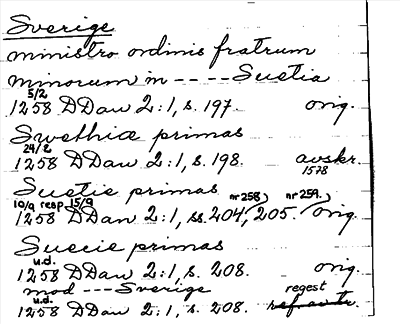 Sverige
ministro ordinis fratrum
minorum in ---- Suetia
5/2
1258 DDan 2:1, s. 197. orig.
Swethiæ primas
24/2
1258 DDan 2:1, s. 198. avskr.
1578
Suetie primas nr 258 nr 259.
10/9 resp. 15/9
1258 DDan 2:1, ss. 204, 205. orig.
Suecie primas
u.d.
1258 DDan 2:1, s. 208. orig.
mod --- Sverige regest
u.d.
1258 DDan 2:1, s. 208.